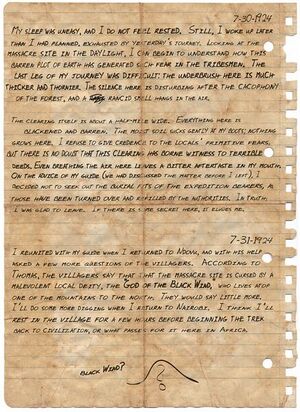 7-30-1924
My sleep was uneasy, and I do not feel rested. Still, I woke up later
than I had planned, exhausted by yesterday's journey. Looking at the
massacre site in the daylight, I can begin to understand how this
barren plot of earth has generated such fear in the tribesmen. The
last leg of my journey was difficult; the underbrush here is much
thicker and thornier. The silence here is disturbing after the cacophony
of the forest, and a rancid smell hangs in the air.
The clearing itself is about a half-mile wide. Everything here is
blackened and barren. The moist soil sucks gently at my boots; nothing
grows here. I refuse to give credence to the locals' primitive fears,
but there is no doubt that this clearing has borne witness to terrible
deeds. Even breathing the air here leaves a bitter aftertaste in my mouth.
On the advice of my guide (we had discussed the matter before I left), I
decided not to seek out the burial pits of the expedition bearers, as
those have been turned over and refilled by the authorities. In truth,
I was glad to leave. If there is some secret here, it eludes me.
7-31-1924
I reunited with my guide when I returned to Ndovu, and with his help
asked a few more questions of the villagers. According to
Thomas, the villagers say that the massacre site is cursed by a
malevolent local deity, the God of the Black Wind, who lives atop
one of the mountains to the north. They would say little more.
I'll do some more digging when I return to Nairobi. I think I'll
rest in the village for a few hours before beginning the trek
back to civilization, or what passes for it here in Africa.
Black Wind?